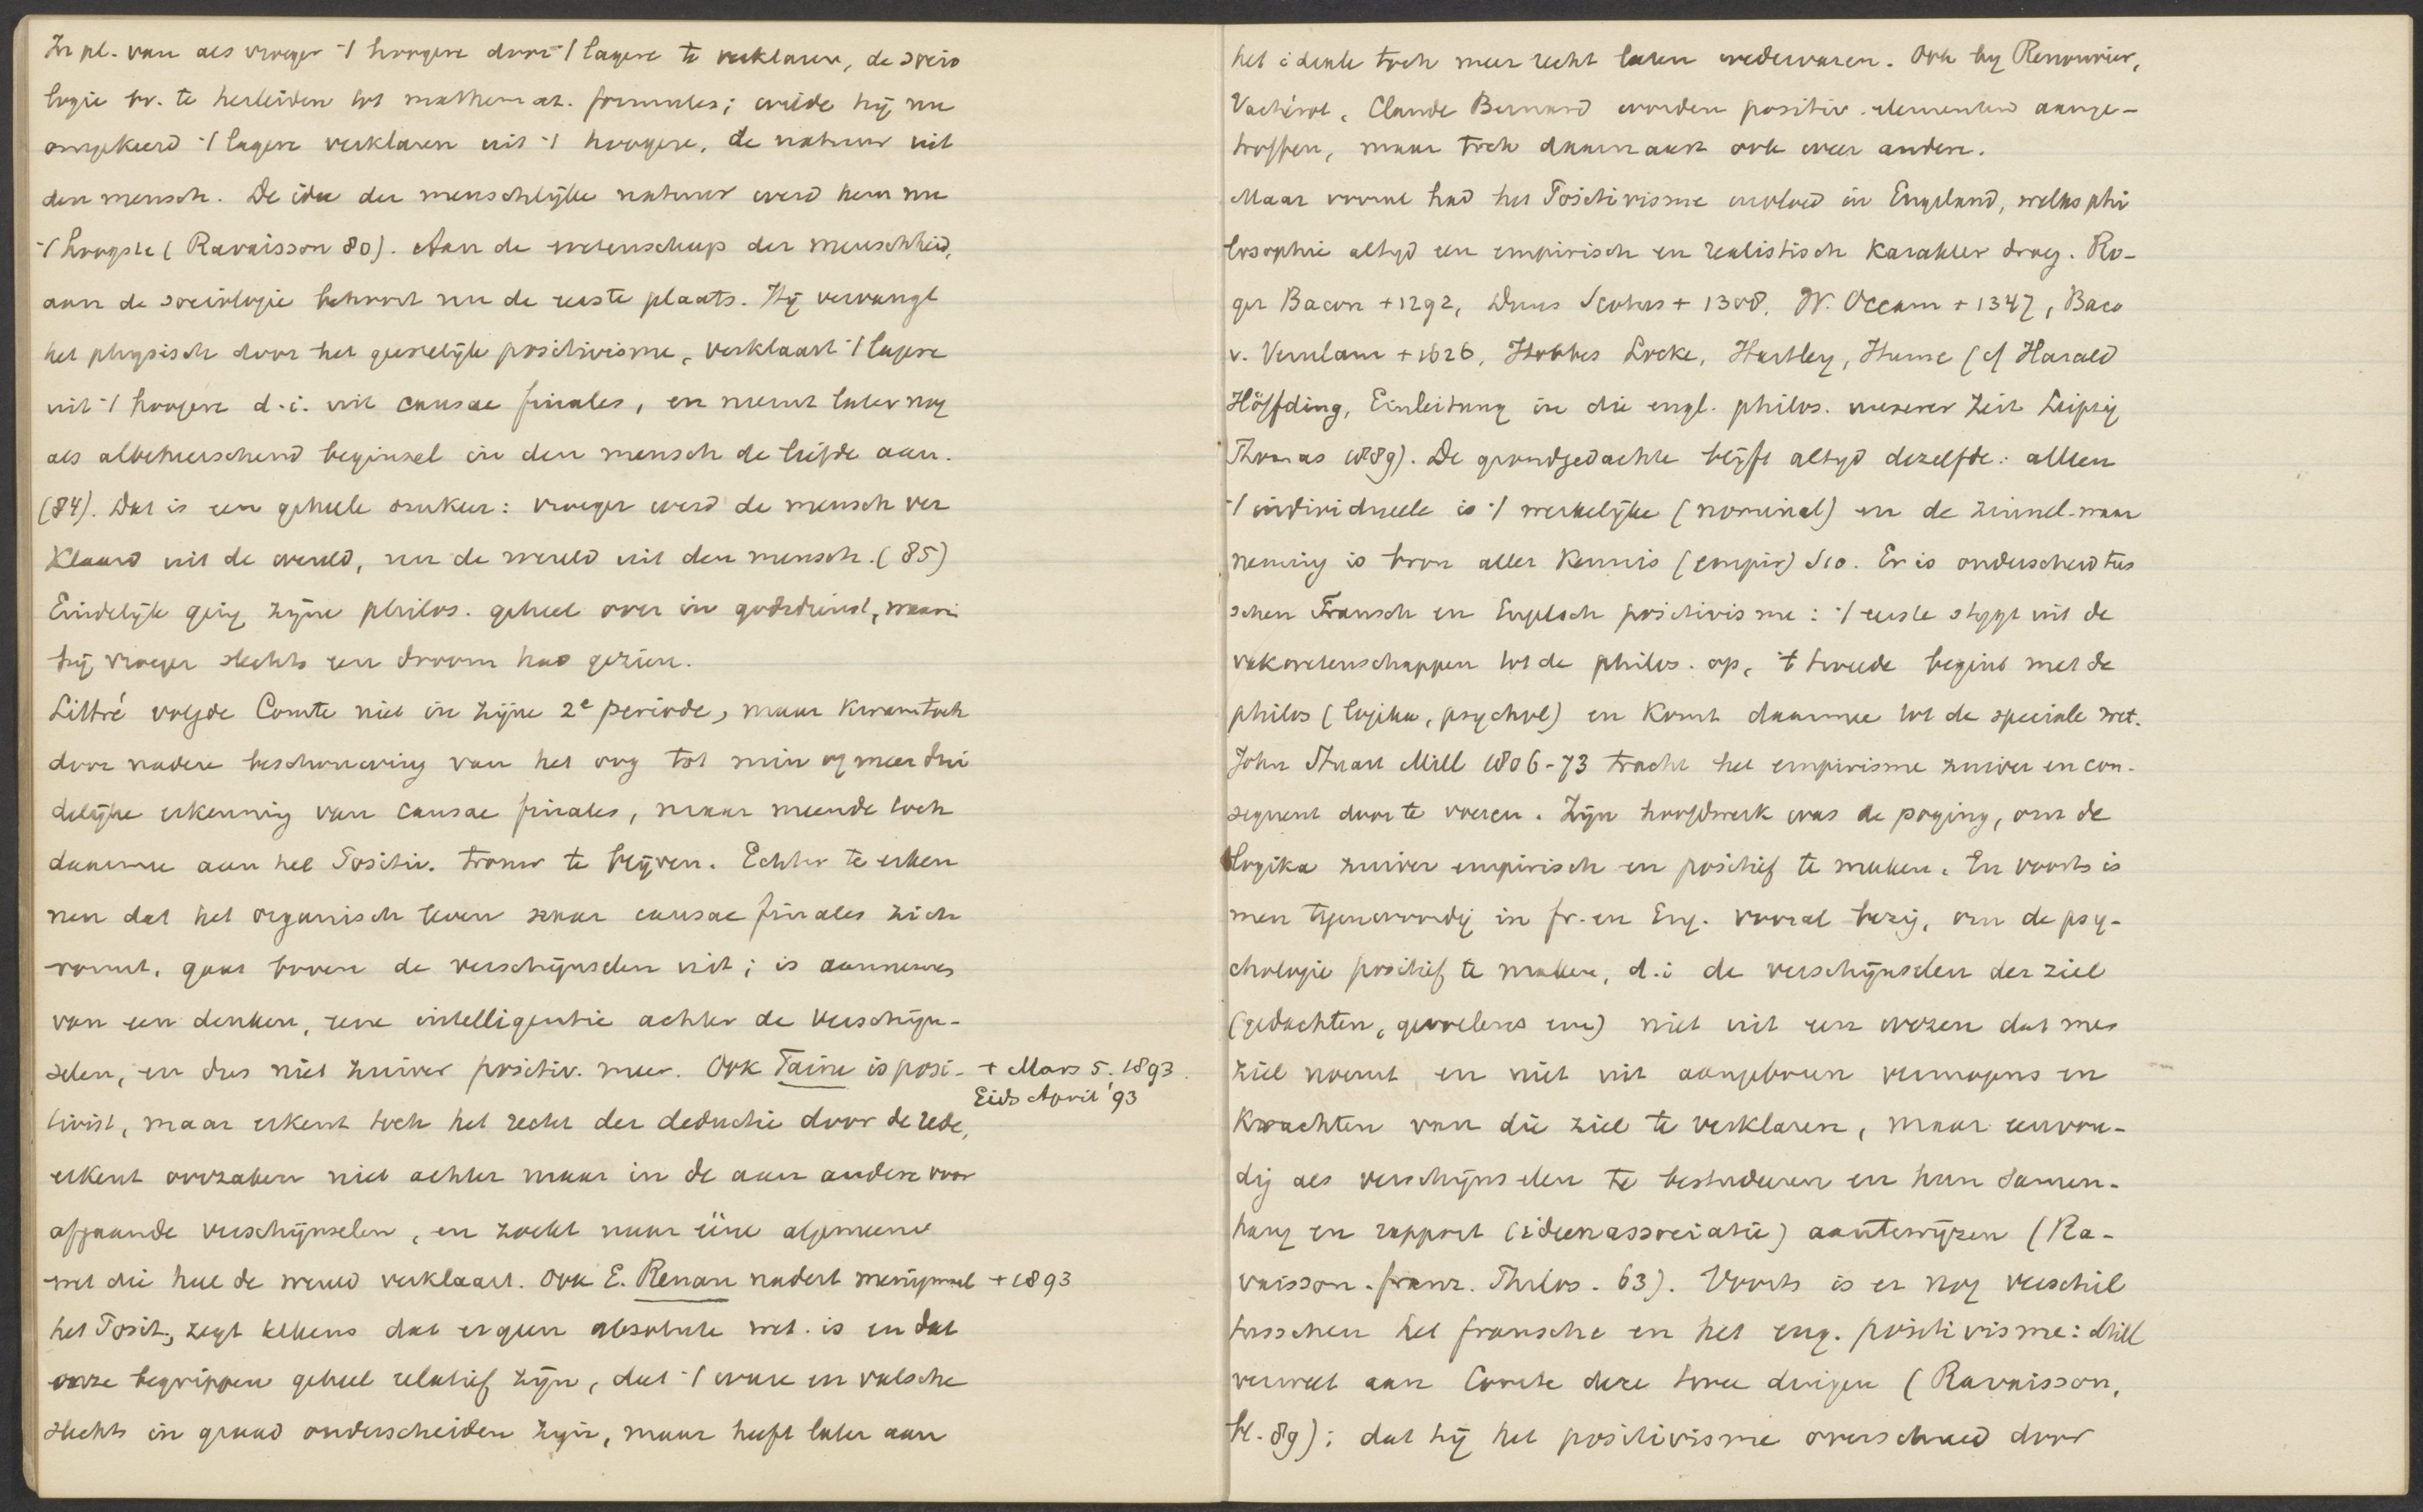 In pl. van als vroeger 't hoogere door 't lagere te verklaren, de socio
logie bv. te herleiden tot mathemat. formules; wilde hij nu
omgekeerd 't lagere verklaren uit 't hoogere, de natuur uit
den mensch. De idee der menschlijke natuur werd hem nu
't hoogste (Ravaisson 80). Aan de wetenschap der menschheid,
aan de sociologie behoort nu de eerste plaats. Hij vervangt
het physisch door het geestelijk positivisme, verklaart 't lagere
uit 't hoogere d.i. uit causae finales, en neemt later nog
als albeheerschend beginsel in den mensch de liefde aan.
(84). Dat is een geheele omkeer: vroeger werd de mensch ver
klaard uit de wereld, nu de wereld uit den mensch. (85)
Eindelijk ging zijne philos. geheel over in godsdienst, waarin
hij vroeger slechts een droom had gezien.
Littré volgde Comte niet in zijne 2e periode, maar kwam toch
door nadere beschouwing van het oog tot min of meer dui
delijke erkenning van causae finales, maar meende toch
daarmee aan het Positiv. trouw te blijven. Echter te erken
nen dat het organisch leven naar causae finales zich
vormt, gaat boven de verschijnselen uit; is aannemen
van een denken, eene intelligentie achter de verschijn-
selen, en dus niet zuiver positiv. meer. Ook Taine is posi-
+ Mars 5. 1893.
Eids April '93
tivist, maar erkent toch het recht der deductie door de rede,
erkent oorzaken niet achter maar in de aan andere voor
afgaande verschijnselen, en zoekt naar ééne algemeene
wet die heel de wereld verklaart. Ook E. Renan nadert menigmaal
+ 1893
het Posit., zegt telkens dat er geen absolute wet. is en dat
onze begrippen geheel relatief zijn, dat 't ware en valsche
slechts in graad onderscheiden zijn, maar heeft later aan
het ideale toch meer recht laten wedervaren. Ook bij Renouvier,
Vacherot, Claude Bernard worden positiv. elementen aange-
troffen, maar toch daarnaast ook weer andere.
Maar vooral had het Positivisme invloed in Engeland, welks phi
losophie altijd een empirisch en realistisch karakter droeg. Ro-
ger Bacon +1292, Duns Scotus + 1308, W. Occam + 1347, Baco
v. Verulam +1626, Hobbes Locke, Hartley, Hume (cf Harald
Höffding, Einleitung in die engl. philos. unserer Zeit Leipzig
Thomas 1889). De grondgedachte blijft altijd dezelfde: alleen
't individueele is 't werkelijke (nominal) en de zinnel. waar
neming is bron aller kennis (empir) Sco. Er is onderscheid tus
schen Fransch en Engelsch positivisme: 't eerste stijgt uit de
vakwetenschappen tot de philos. op, 't tweede begint met de
philos (logika, psychol) en komt daarmee tot de speciale wet.
John Stuart Mill 1806-73 tracht het empirisme zuiver en con-
sequent door te voeren. Zijn hoofdwerk was de poging, om de
logika zuiver empirisch en positief te maken. En voorts is
men tegenwoordig in Fr. en Eng. vooral bezig, om de psy-
chologie positief te maken, d.i de verschijnselen der ziel
(gedachten, gevoelens enz) niet uit een wezen dat men
ziel noemt en niet uit aangeboren vermogens en
krachten van die ziel te verklaren, maar eenvou-
dig als verschijnselen te bestudeeren en hun samen-
hang en rapport (ideenassociatie) aantewijzen (Ra-
vaisson. franz. Philos. 63). Voorts is er nog verschil
tusschen het fransche en het eng. positivisme: Mill
verweet aan Comte deze twee dingen (Ravaisson,
bl. 89): dat hij het positivisme overschreed door